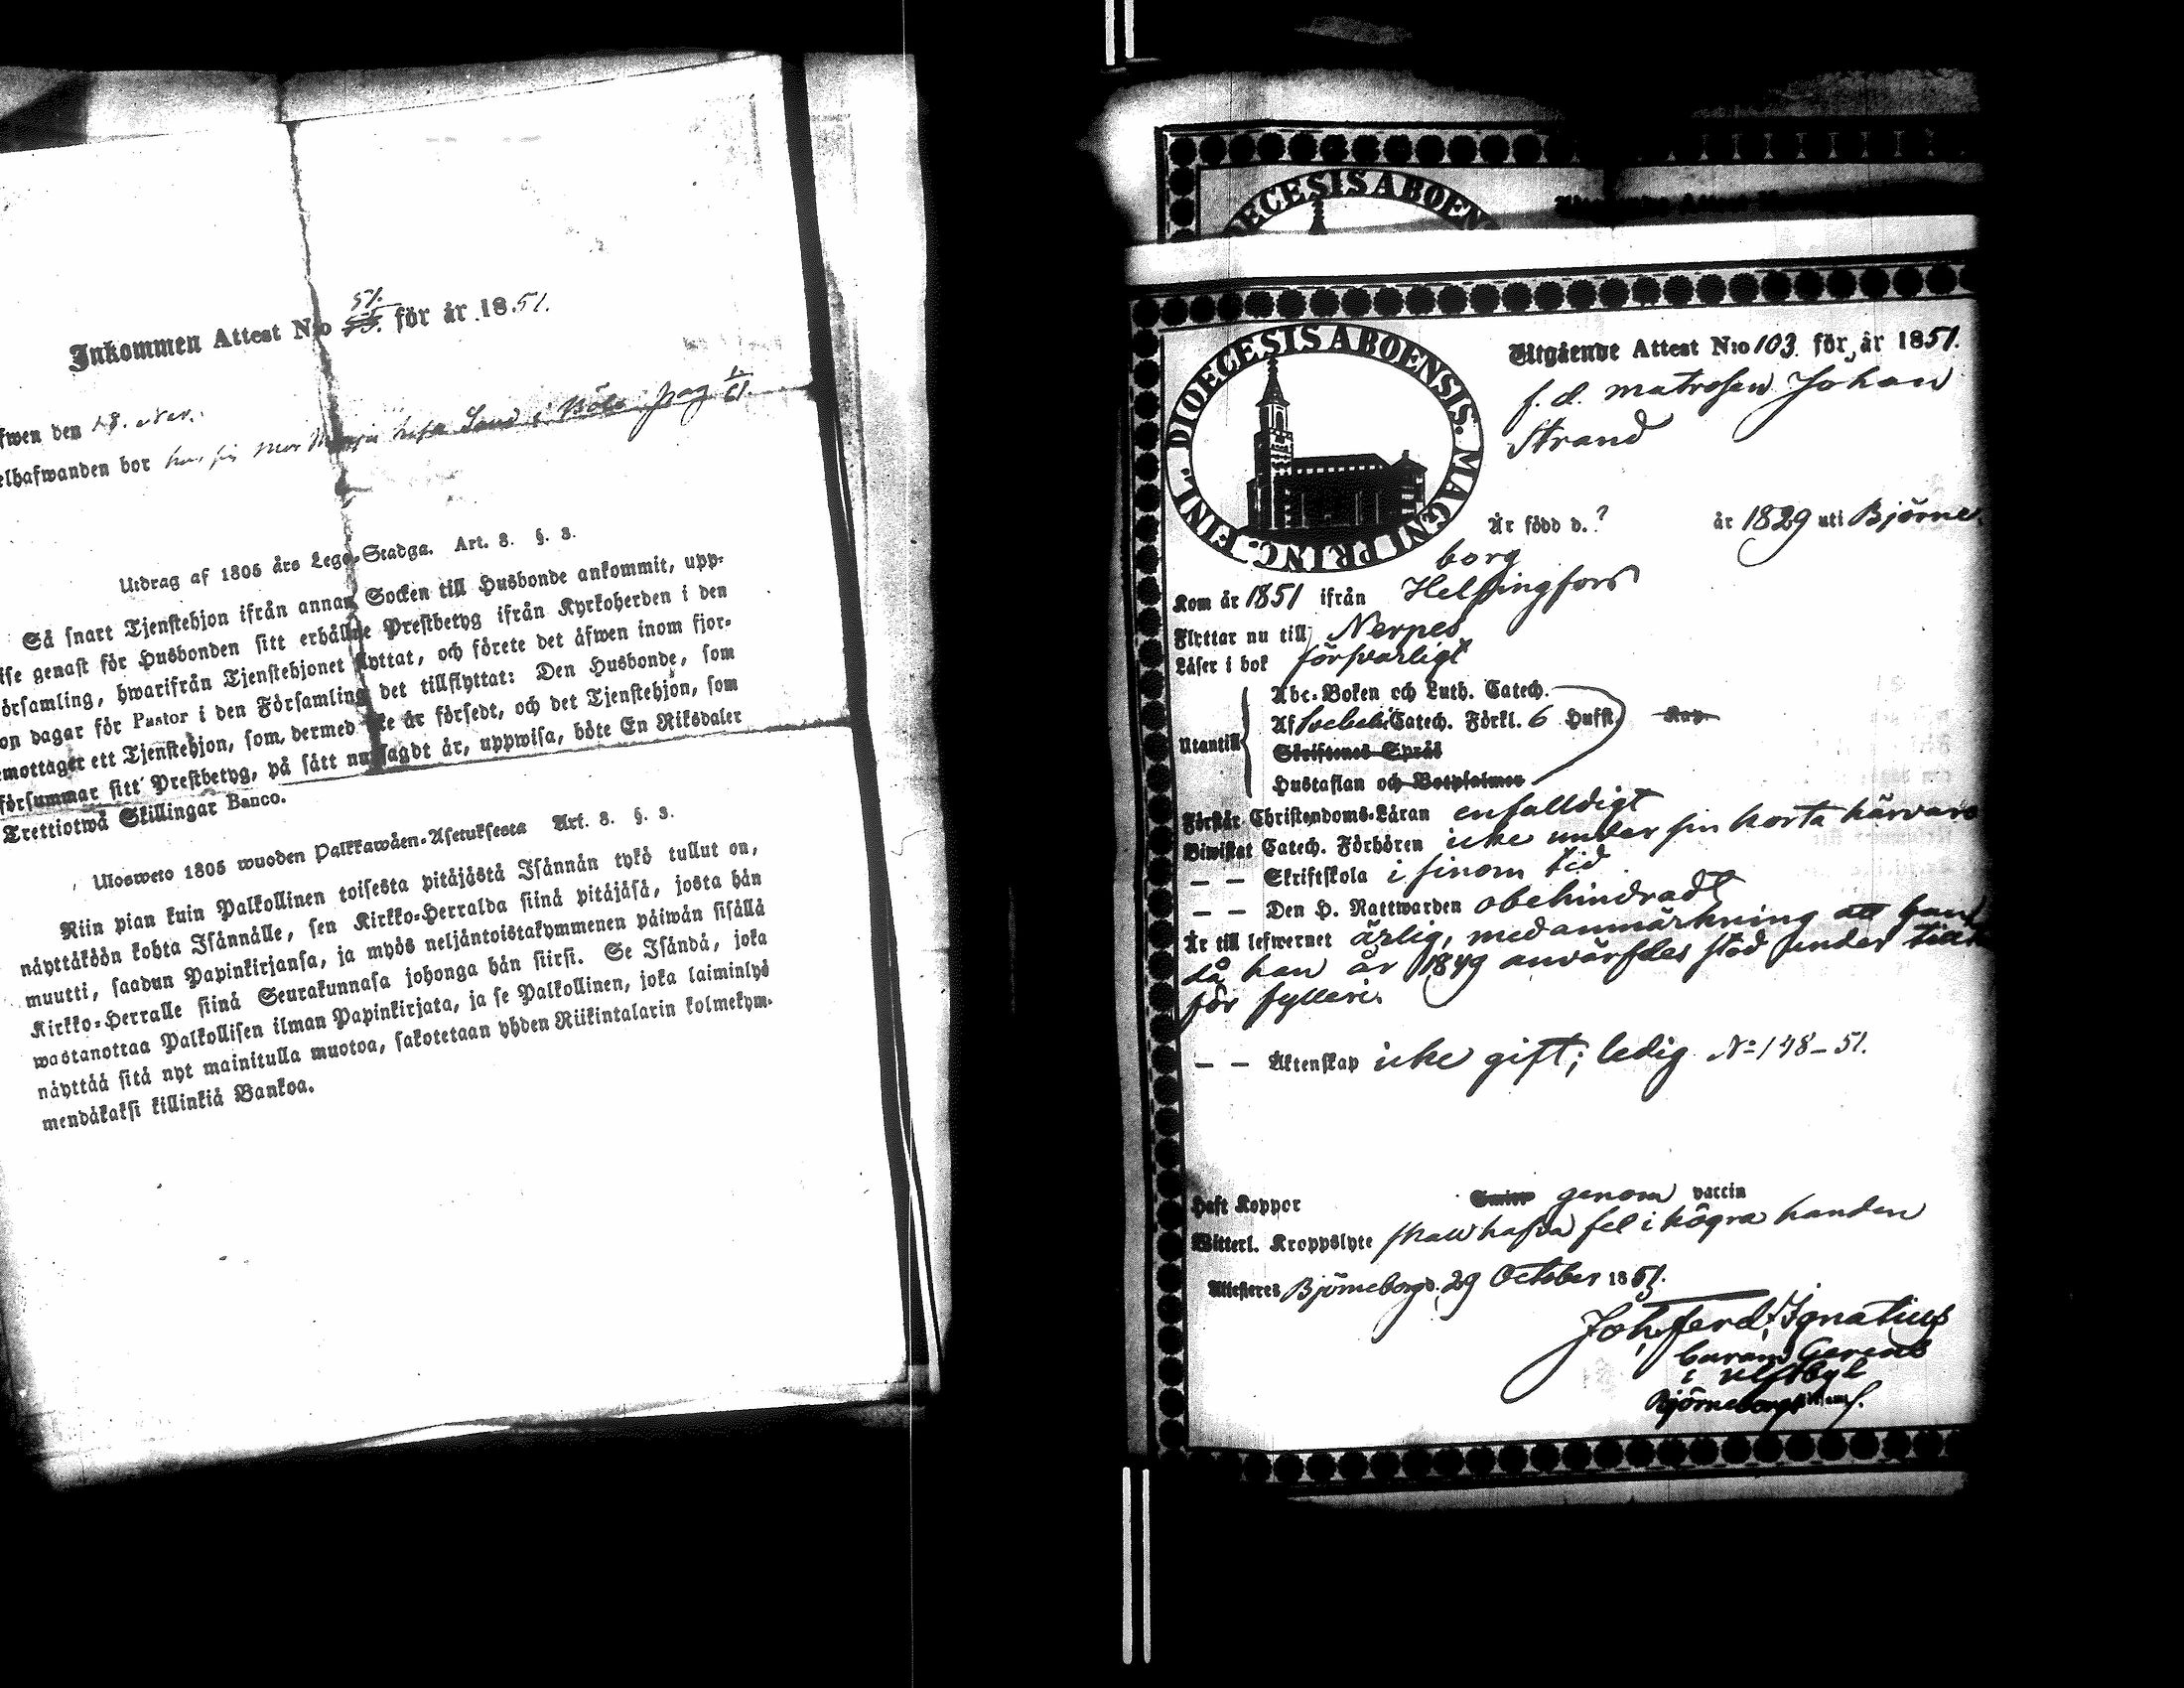 Inkommen Attest N:o 51. 53. för år 1851.
fwen den 18. Nov.
elhafwanden bor hos sin mor i Böle pag 61.
Utdrag af 1805 års Lego-Stadga. Art. 8. §. 3.
Så snart Tjenstehjon ifrån annan Socken till Husbonde ankommit, upp-
ise genast för Husbonden sitt erhållne Prestbetyg ifrån Kyrkoherden i den
örsamling, hwarifrån Tjenstehjonet flyttat, och förete det äfwen inom fjor-
on dagar för Pastor i den Församling det tillflyttat: Den Husbonde, som
mottager ett Tjenstehjon, som dermed icke är försedt, och det Tjenstehjon, som
försummar sitt Prestbetyg, på sätt nu sagdt är, uppwisa, böte En Riksdaler
Trettiotwå Skillingar Banco.
Ulosweto 1805 wuoden Palkkawäen-Asetuksesta Art. 8. §. 3.
Niin pian kuin Palkollinen toisesta pitäjästä Isännän tykö tullut on,
näyttäköön kohta Isännälle, sen Kirkko-Herralda siinä pitäjäsä, josta hän
muutti, saadun Papinkirjansa, ja myös neljäntoistakymmenen päiwän sisällä
Kirkko-Herralle siinä Seurakunnasa johonga hän siirsi. Se Isändä, joka
wastanottaa Palkollisen ilman Papinkirjata, ja se Palkollinen, joka laiminlyö
näyttää sitä nyt mainitulla muotoa, sakotetaan yhden Riikintalarin kolmekym-
mendäkaksi killinkiä Bankoa.
DIOECESIS ABOENS
DIOECESIS ABOENSIS. MAGNI PRINC. FINL.
Utgående Attest N:o 103. för år 1851.
f. d. matrosen Johan
Strand
Är född d. ? år 1829 uti Björne-
borg
Kom år 1851 ifrån Helsingfors
Flyttar nu till Nerpes
Läser i bok försvarligt
Utantill
Abc-Boken och Luth. Catech.
Af Svebelii Catech. Förkl. 6 Hufst. Kap.
Skriftenes Språk
Hustaflan och Botpsalmer
Förstår Christendoms-Läran enfalldigt
Biwistat Catech. Förhören icke under sin korta härvaro
— — Skriftskola i sinom tid
— — Den H. Nattwarden obehindradt
Är till lefwernet ärlig, med anmärkning att han
då han år 1849 anvärfdes stod under tilltal
för fylleri.
— — Äktenskap icke gift; ledig No 148–51.
Haft Koppor genom vaccin
Witterl. Kroppslyte skall hafva fel i högra handen
Attesteres Björneborg d. 29 October 1851.
Joh. Ferd. Ignatius
Curam Gerens
i Ulfsby &
Björneborgs förs.